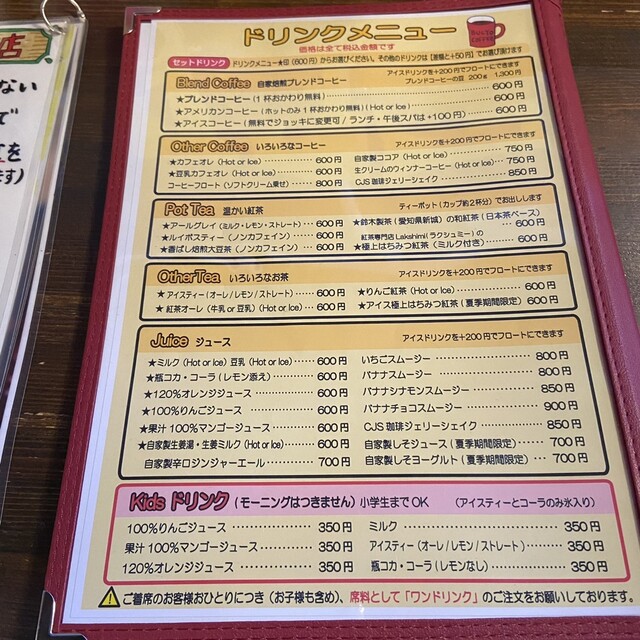 店
ない
で
を
ます)
ドリンクメニュー
価格は全て税込金額です
セットドリンク ドリンクメニュー★印(600円)からお選びください。その他のドリンクは【差額と+50円】でお選び頂けます
Blend Coffee 自家焙煎ブレンドコーヒー アイスドリンクを+200円でフロートにできます
ブレンドコーヒーの豆 200g 1,300円
★ブレンドコーヒー(1杯おかわり無料) 600円
★アメリカンコーヒー(ホットのみ1杯おかわり無料)(Hot or Ice) 600円
★アイスコーヒー(無料でジョッキに変更可/ランチ・午後スパは+100円) 600円
Other Coffee いろいろなコーヒー アイスドリンクを+200円でフロートにできます
★カフェオレ(Hot or Ice) 600円
★豆乳カフェオレ(Hot or Ice) 600円
コーヒーフロート(ソフトクリーム乗せ) 800円
自家製ココア(Hot or Ice) 750円
生クリームのウィンナーコーヒー(Hot or Ice) 750円
CJS 珈琲ジェリーシェイク 850円
Pot Tea 温かい紅茶 ティーポット(カップ約2杯分)でお出しします
★アールグレイ(ミルク・レモン・ストレート) 600円
★ルイボスティー(ノンカフェイン) 600円
★香ばし焙煎大豆茶(ノンカフェイン) 600円
★鈴木製茶(愛知県新城)の和紅茶(日本茶ベース) 600円
紅茶専門店 Lakshimi(ラクシュミー)の
★極上はちみつ紅茶(ミルク付き) 600円
OtherTea いろいろなお茶 アイスドリンクを+200円でフロートにできます
★アイスティー(オーレ/レモン/ストレート) 600円
★紅茶オーレ(牛乳or豆乳)(Hot or Ice) 600円
★りんご紅茶(Hot or Ice) 600円
★アイス極上はちみつ紅茶(夏季期間限定) 600円
Juice ジュース アイスドリンクを+200円でフロートにできます
★ミルク(Hot or Ice)豆乳(Hot or Ice) 600円
★瓶コカ・コーラ(レモン添え) 600円
★120%オレンジジュース 600円
★100%りんごジュース 600円
★果汁100%マンゴージュース 600円
★自家製生姜湯・生姜ミルク(Hot or Ice) 600円
自家製辛口ジンジャーエール 700円
いちごスムージー 800円
バナナスムージー 800円
バナナシナモンスムージー 850円
バナナチョコスムージー 900円
CJS 珈琲ジェリーシェイク 850円
自家製しそジュース(夏季期間限定) 700円
自家製しそヨーグルト(夏季期間限定) 700円
Kids ドリンク (モーニングはつきません)小学生までOK (アイスティーとコーラのみ氷入り)
100%りんごジュース 350円
果汁100%マンゴージュース 350円
120%オレンジジュース 350円
ミルク 350円
アイスティー(オーレ/レモン/ストレート) 350円
瓶コカ・コーラ(レモンなし) 350円
ご着席のお客様おひとりにつき(お子様も含め)、席料として「ワンドリンク」のご注文をお願いしております。